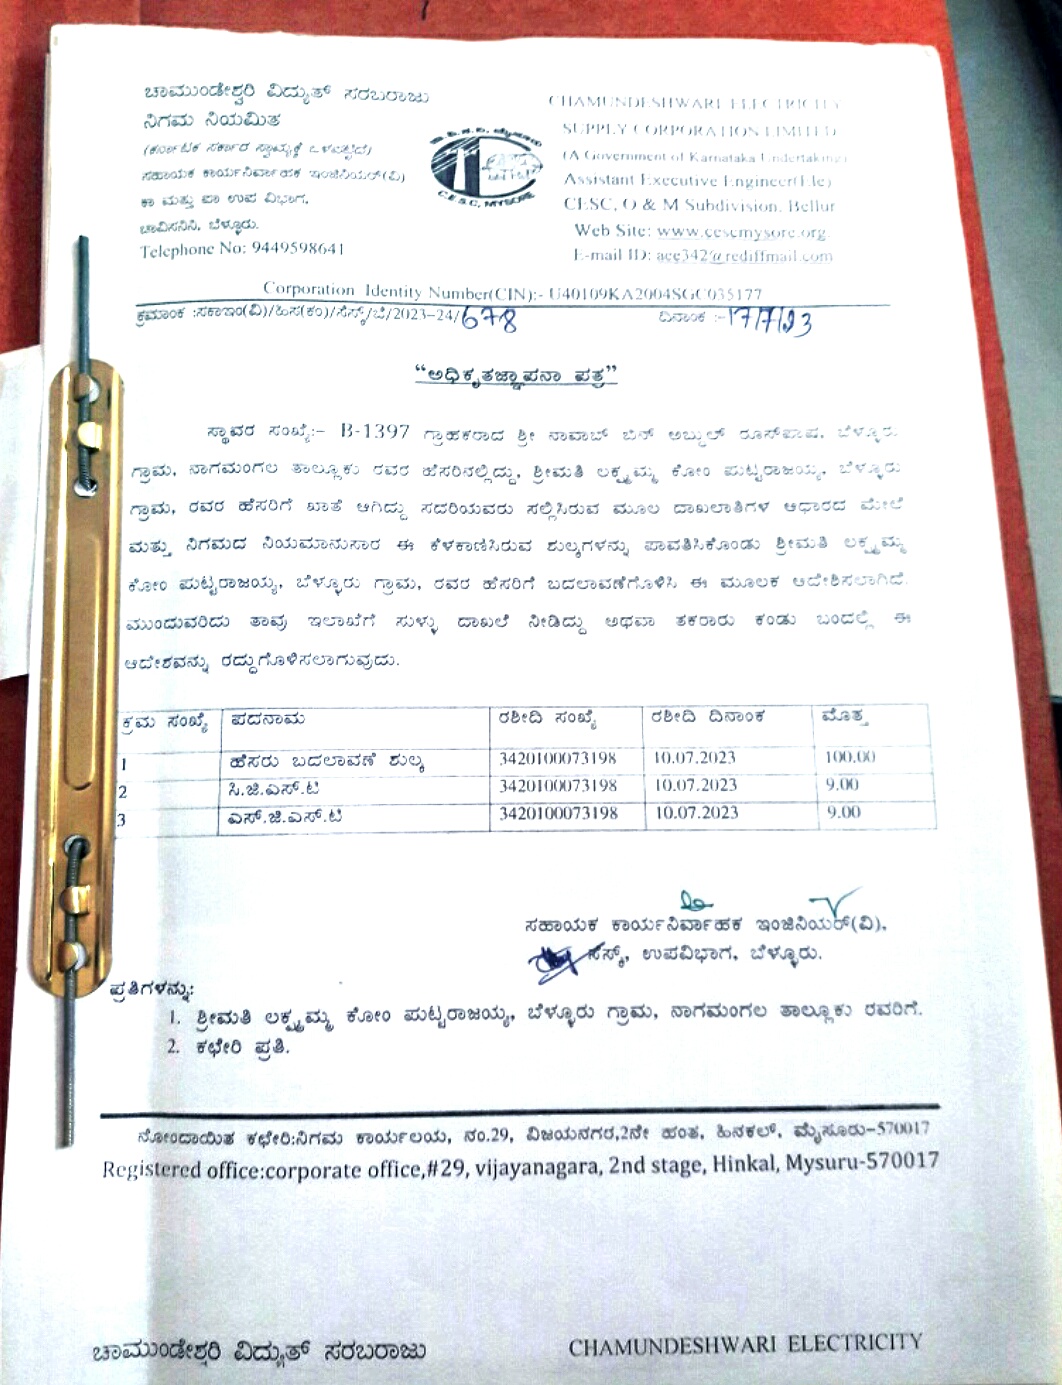 ಚಾಮುಂಡೇಶ್ವರಿ ವಿದ್ಯುತ್ ಸರಬರಾಜು
ನಿಗಮ ನಿಯಮಿತ
(ಕರ್ನಾಟಕ ಸರ್ಕಾರ ಸ್ವಾಮ್ಯಕ್ಕೆ ಒಳಪಟ್ಟಿದೆ)
ಸಹಾಯಕ ಕಾರ್ಯನಿರ್ವಾಹಕ ಇಂಜಿನಿಯರ್(ವಿ)
ಕಾ ಮತ್ತು ಪಾ ಉಪ ವಿಭಾಗ,
ಚಾವಿಸನಿನಿ, ಬೆಳ್ಳೂರು.
Telephone No: 9449598641
C.E.S.C, MYSORE
CHAMUNDESHWARI ELECTRICITY
SUPPLY CORPORATION LIMITED
(A Government of Karnataka Undertaking)
Assistant Executive Engineer(Ele)
CESC, O & M Subdivision, Bellur
Web Site: www.cescmysore.org.
E-mail ID: aee342@rediffmail.com
Corporation Identity Number(CIN):- U40109KA2004SGC035177
ಕ್ರಮಾಂಕ :ಸಕಾಇಂ(ವಿ)/ಹಿಸ(ಕಂ)/ಸೆಸ್ಕ್/ಬೆ/2023-24/678 ದಿನಾಂಕ :-17/7/23
“ಅಧಿಕೃತಜ್ಞಾಪನಾ ಪತ್ರ”
ಸ್ಥಾವರ ಸಂಖ್ಯೆ:- B-1397 ಗ್ರಾಹಕರಾದ ಶ್ರೀ ನಾವಾಬ್ ಬಿನ್ ಅಬ್ದುಲ್ ರೂಸ್‌ಪಾಷ, ಬೆಳ್ಳೂರು
ಗ್ರಾಮ, ನಾಗಮಂಗಲ ತಾಲ್ಲೂಕು ರವರ ಹೆಸರಿನಲ್ಲಿದ್ದು, ಶ್ರೀಮತಿ ಲಕ್ಷ್ಮಮ್ಮ ಕೋಂ ಪುಟ್ಟರಾಜಯ್ಯ, ಬೆಳ್ಳೂರು
ಗ್ರಾಮ, ರವರ ಹೆಸರಿಗೆ ಖಾತೆ ಆಗಿದ್ದು ಸದರಿಯವರು ಸಲ್ಲಿಸಿರುವ ಮೂಲ ದಾಖಲಾತಿಗಳ ಆಧಾರದ ಮೇಲೆ
ಮತ್ತು ನಿಗಮದ ನಿಯಮಾನುಸಾರ ಈ ಕೆಳಕಾಣಿಸಿರುವ ಶುಲ್ಕಗಳನ್ನು ಪಾವತಿಸಿಕೊಂಡು ಶ್ರೀಮತಿ ಲಕ್ಷ್ಮಮ್ಮ
ಕೋಂ ಪುಟ್ಟರಾಜಯ್ಯ, ಬೆಳ್ಳೂರು ಗ್ರಾಮ, ರವರ ಹೆಸರಿಗೆ ಬದಲಾವಣೆಗೊಳಿಸಿ ಈ ಮೂಲಕ ಆದೇಶಿಸಲಾಗಿದೆ.
ಮುಂದುವರಿದು ತಾವು ಇಲಾಖೆಗೆ ಸುಳ್ಳು ದಾಖಲೆ ನೀಡಿದ್ದು ಅಥವಾ ತಕರಾರು ಕಂಡು ಬಂದಲ್ಲಿ ಈ
ಆದೇಶವನ್ನು ರದ್ದುಗೊಳಿಸಲಾಗುವುದು.
ಕ್ರಮ ಸಂಖ್ಯೆ ಪದನಾಮ ರಶೀದಿ ಸಂಖ್ಯೆ ರಶೀದಿ ದಿನಾಂಕ ಮೊತ್ತ
1 ಹೆಸರು ಬದಲಾವಣೆ ಶುಲ್ಕ 3420100073198 10.07.2023 100.00
2 ಸಿ.ಜಿ.ಎಸ್.ಟಿ 3420100073198 10.07.2023 9.00
3 ಎಸ್.ಜಿ.ಎಸ್.ಟಿ 3420100073198 10.07.2023 9.00
ಸಹಾಯಕ ಕಾರ್ಯನಿರ್ವಾಹಕ ಇಂಜಿನಿಯರ್(ವಿ),
ಸೆಸ್ಕ್, ಉಪವಿಭಾಗ, ಬೆಳ್ಳೂರು.
ಪ್ರತಿಗಳನ್ನು:
1. ಶ್ರೀಮತಿ ಲಕ್ಷ್ಮಮ್ಮ ಕೋಂ ಪುಟ್ಟರಾಜಯ್ಯ, ಬೆಳ್ಳೂರು ಗ್ರಾಮ, ನಾಗಮಂಗಲ ತಾಲ್ಲೂಕು ರವರಿಗೆ.
2. ಕಛೇರಿ ಪ್ರತಿ.
ನೋಂದಾಯಿತ ಕಛೇರಿ:ನಿಗಮ ಕಾರ್ಯಲಯ, ನಂ.29, ವಿಜಯನಗರ,2ನೇ ಹಂತ, ಹಿನಕಲ್, ಮೈಸೂರು-570017
Registered office:corporate office,#29, vijayanagara, 2nd stage, Hinkal, Mysuru-570017
ಚಾಮುಂಡೇಶ್ವರಿ ವಿದ್ಯುತ್ ಸರಬರಾಜು CHAMUNDESHWARI ELECTRICITY